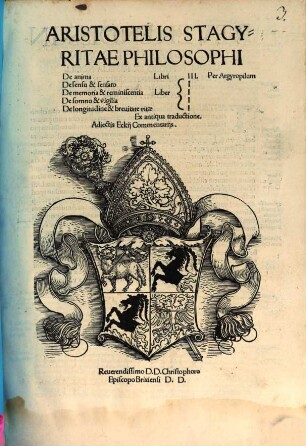 3.
ARISTOTELIS STAGY-
RITAE PHILOSOPHI
De anima Libri III. Per Argyropilum
De sensu & sensato I
De memoria & reminiscentia Liber I
De somno & vigilia I
De longitudine & brevitate vitæ I
Ex antiqua traductione.
Adiectis Eckij Commentarijs.
Reverendissimo D. D. Christophoro
Episcopo Brixiensi D. D.